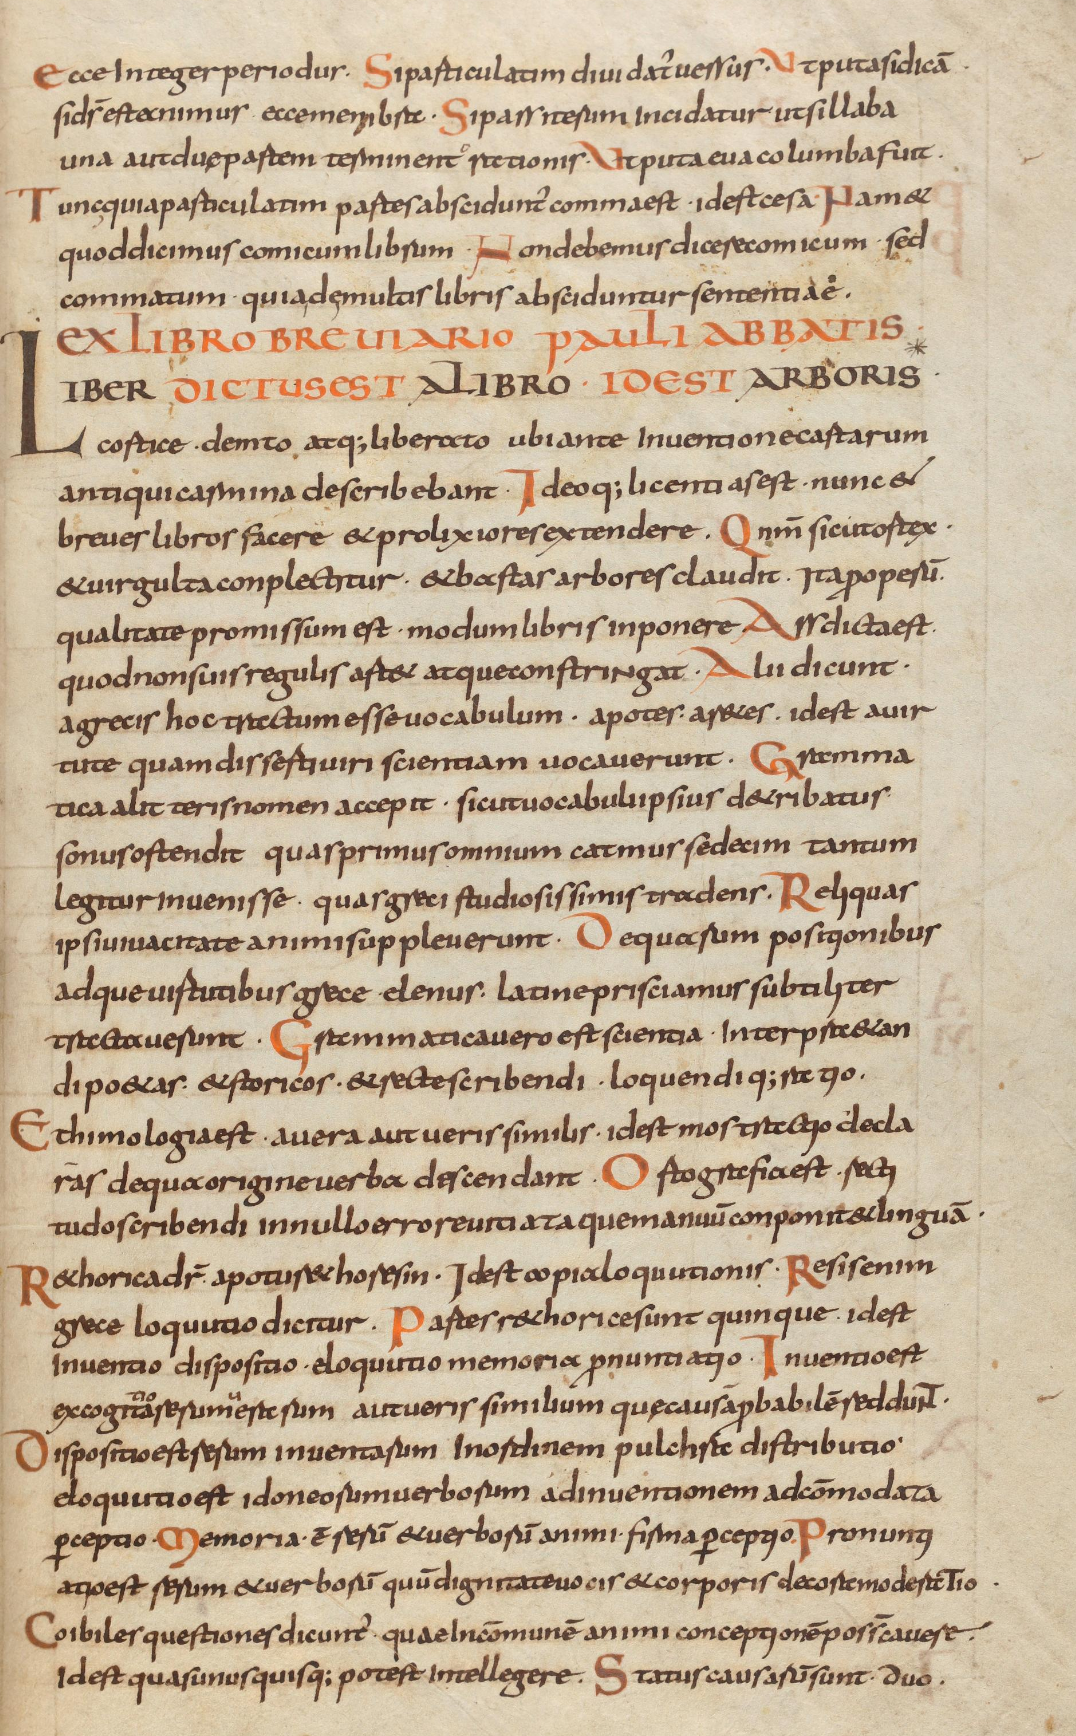 Ecce Integer periodur. Si particulatim diuidat᷑ uersus. Ut puta si dicā.
si dr̄ est animus eccemembra. Si partitesum Incidatur ut sillaba
una aut duę partem terminent orationis. Ut puta eua columba fuit.
Tunc quia particulatim partes abscidunt᷑ comma est. idest cesa. Nam &
quod dicimus comicum librum. Non debemus dicere comicum. sed
commatum. quia de multis libris absciduntur sententiae.
EX LIBRO BREUIARIO PAULI ABBATIS.
LIBER DICTUS EST A LIBRO. IDEST ARBORIS
cortice. demto atq; liberato ubi ante Inventione cartarum
antiqui carmina describebant. Ideoq; licentiasest. nunc &
breues libros facere & prolixiores extendere. Qnm̄ sicut ostex.
& uirgulta conplectitur. & bastas arbores claudit. Ita pro operū.
qualitate promissum est. modum libris inponere Ars dicta est.
quod non suis regulis art& atque constringat. Alii dicunt.
a grecis hoc tractum esse uocabulum. apotes. ar&es. idest auir
tute quam disserti uiri scientiam vocaverunt. Gramma
tica a litteris nomen accepit. sicut uocabuli ipsius d&ribatus
sonus ostendit quas primus omnium catmus sedecim tantum
legitur Inuenisse. quas greci studiosissimis tradens. Reliquas
ipsi uiuacitate animi suppleverunt. De quarum positionibus
adque uirtutibus grece elenus. latine prisciamus subtiliter
tractaverunt. Grammatica uero est scientia. Interpr&an
di po&as. & storicos. & recte scribendi. loquendiq; ratio.
Ethimologia est. a vera aut verissimilis. idest mostratio decla
rās de qua origine verba descendant. Ortografia est. recti
tudo scribendi in nullo errore uitiata que manuū conponit & linguā.
R&horica dr̄. apotus r&horesin. Idest copia loquutionis. Resis enim
grece loquutio dicitur. Partes r&horice sunt quinque. idest
Inventio dispositio. eloquutio memoria pronuntiatio. Inventio est
excogitatio rerum verarum aut verissimilium que causā probabilē reddunt.
Dispositio est rerum inventarum In ordinem pulchra distributio
eloquutio est idoneorum verborum ad inventionem adcōmodata
perceptio. Memoria. ē rerū & verborū animi. firma perceptio. Pronunti
atio est rerum & verborū quū dignitate vocis & corporis decora moderatio.
Coibiles questiones dicunt᷑. quae In cōmunē animi conceptionē possn̄ cavere.
Idest quas unusquisq; potest Intellegere. Status causarū sunt. duo.